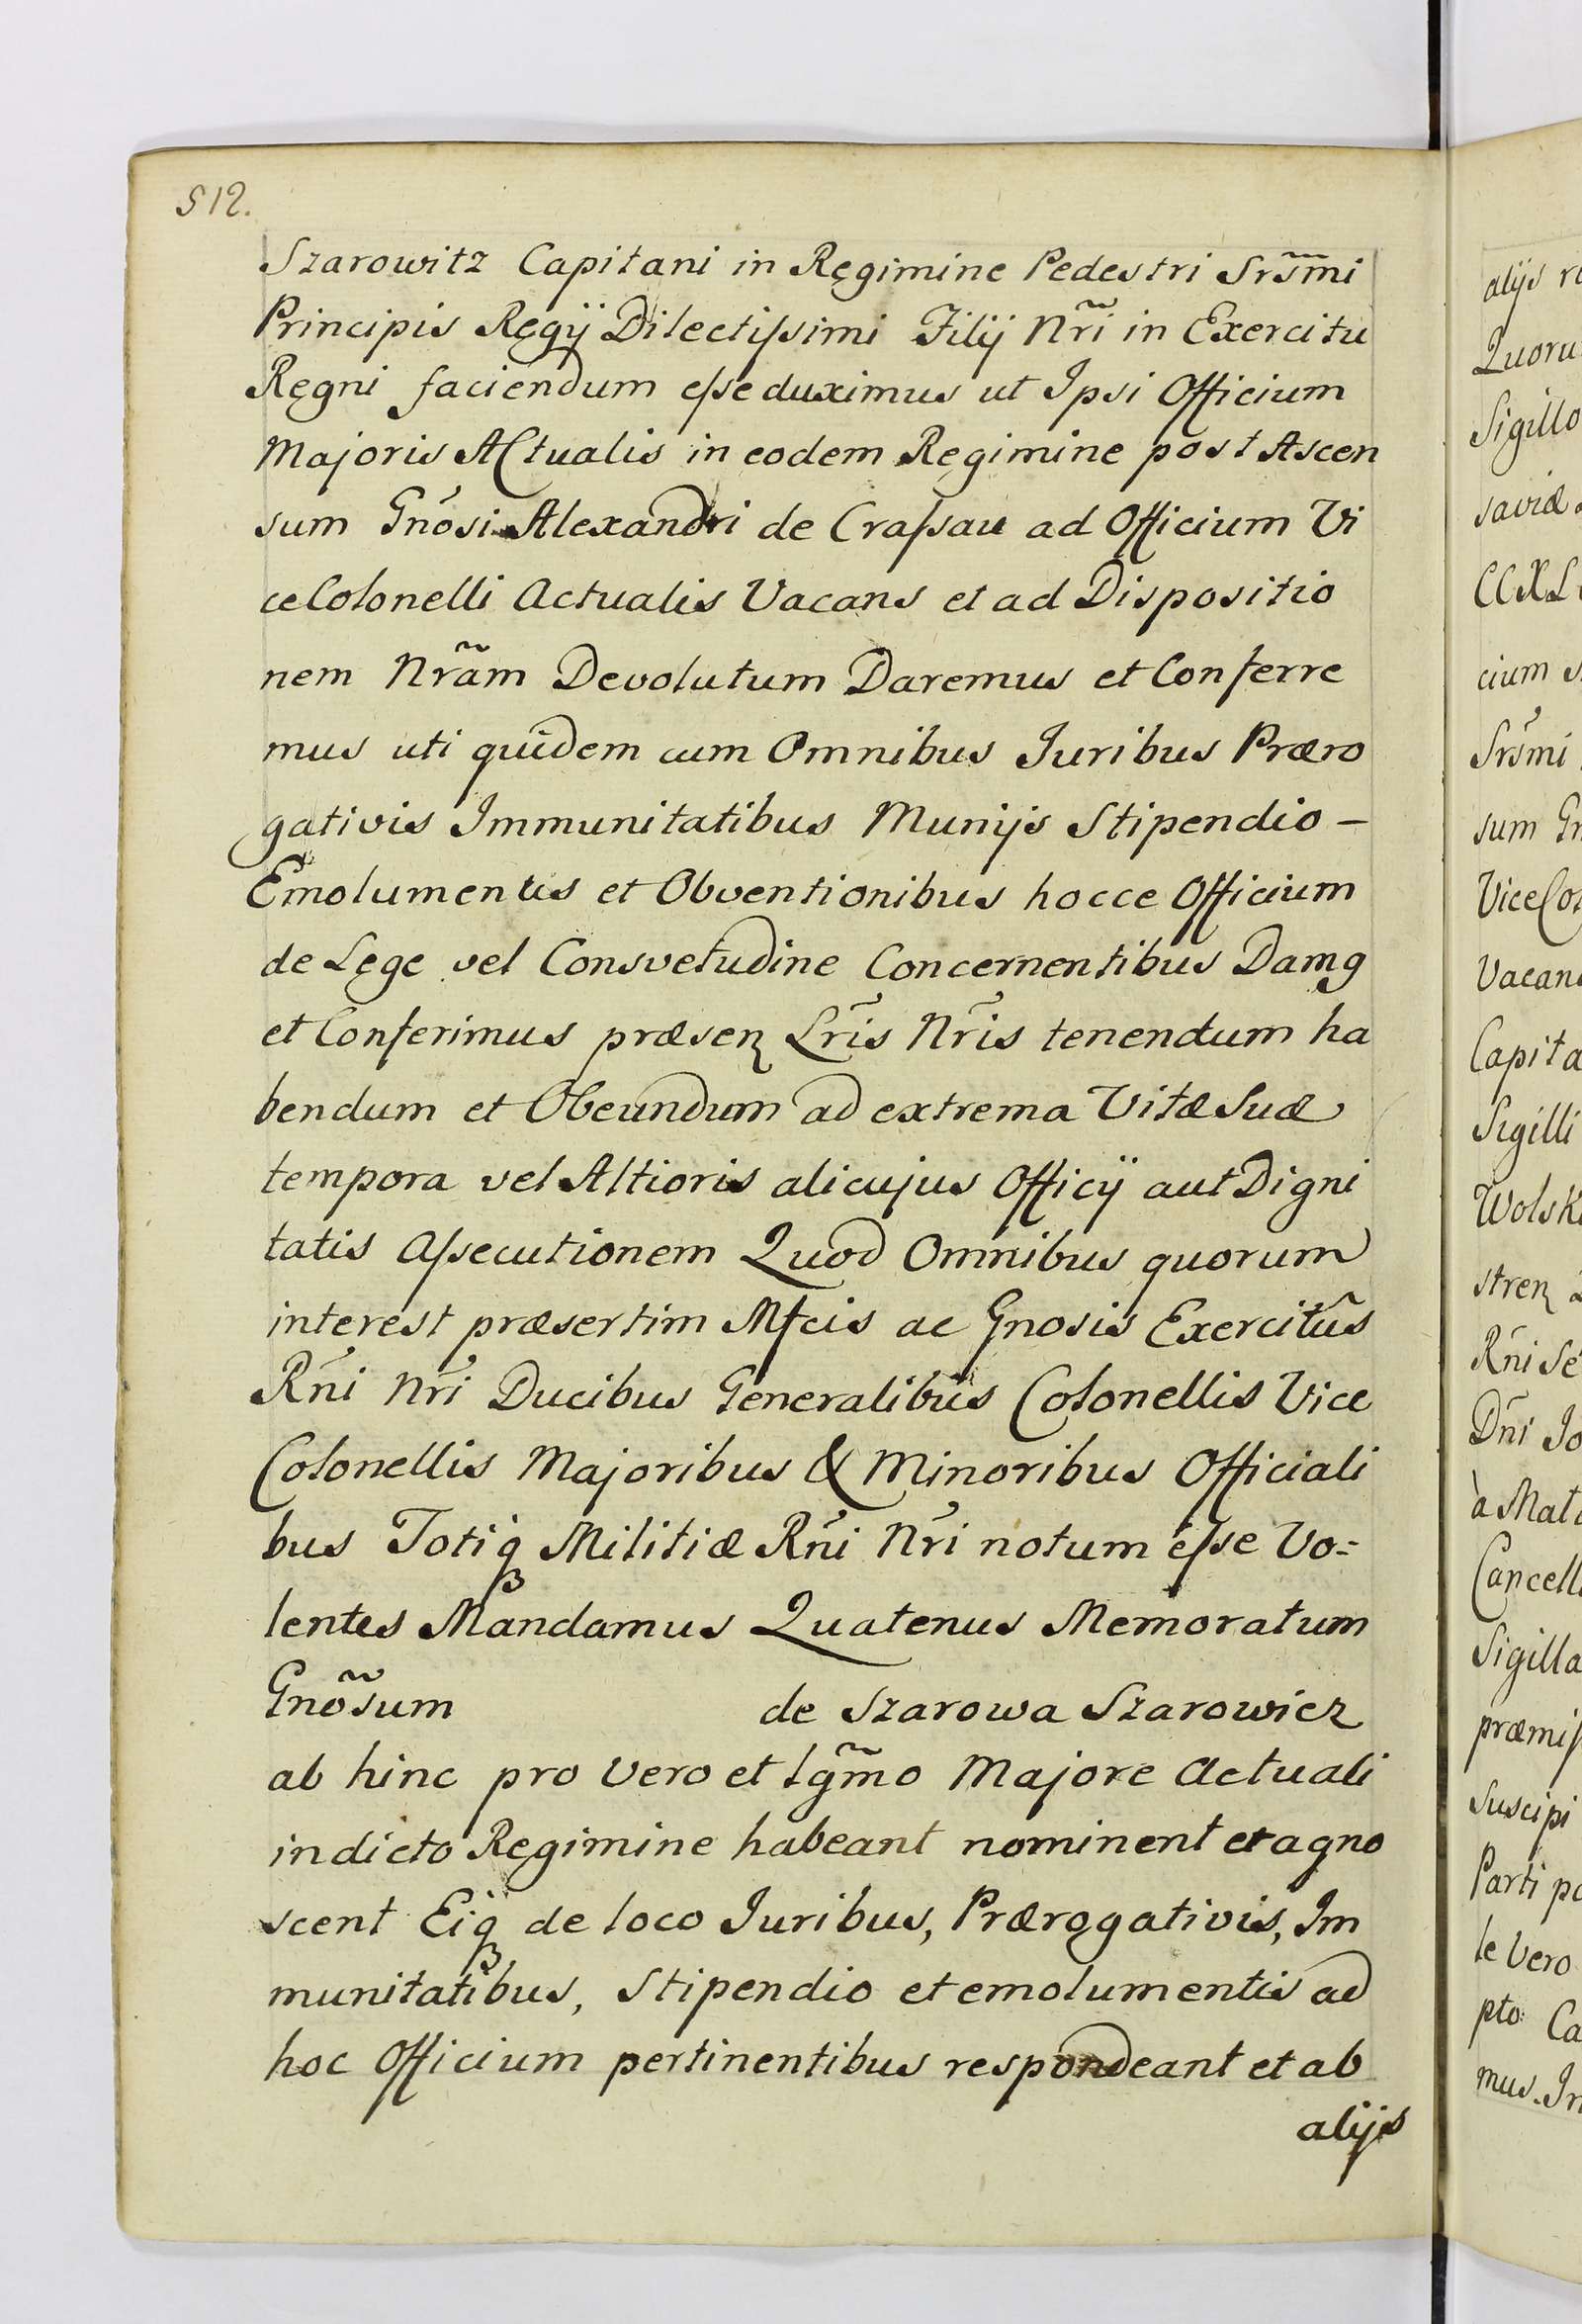 512.
Szarowitz Capitani in Regimine Pedestri Srsm̃i
Principis Regÿ Dilectiſsimi Filÿ Nr̃i in Exercitu
Regni faciendum eſse duximus ut Ipsi Officium
Majoris Actualis in eodem Regimine post Ascen
sum Gnõsi Alexandri de Craſsau ad Officium Vi
ceColonelli Actualis Vacans et ad Dispositio
nem Nrãm Devolutum Daremus et Conferre
mus uti quidem cum Omnibus Juribus Præro
gativis Immunitatibus Munijs Stipendio –
Emolumentis et Obventionibus hocce Officium
de Lege vel Consvetudine Concernentibus Damg
et Conferimus præsenꝫ Lr̃is Nr̃is tenendum ha
bendum et Obeundum ad extrema Vitæ Suæ
tempora vel Altioris alicujus Officÿ aut Digni
tatis Aſsecutionem Quod Omnibus quorum
interest præsertim Mfcis ac Gnosis Exercitûs
Rñi Nr̃i Ducibus Generalibus Colonellis Vice
Colonellis Majoribus & Minoribus Officiali
bus Totiqꝫ Militiæ Rñi Nr̃i notum eſse Vo=
lentes Mandamus Quatenus Memoratum
Gnõsum de Szarowa Szarowicz
ab hinc pro Vero et lgm̃o Majore Actuali
in dicto Regimine habeant nominent et agno
scent Eiqꝫ de loco Juribus, Prærogativis, Im
munitatibus, Stipendio et emolumentis ad
hoc Officium pertinentibus respondeant et ab
alijs
alijs
Sigillo
saviæ
CCXL
cium
Srs̃mi
sum
Vacan
Capita
Sigilli
Wolsk
strenꝫ
Rñi Se
Dñi Jo
à Mat
Cancell
Sigilla
præmiſ
Suscipi
Parti
le Vero
pto Ca
mus. In